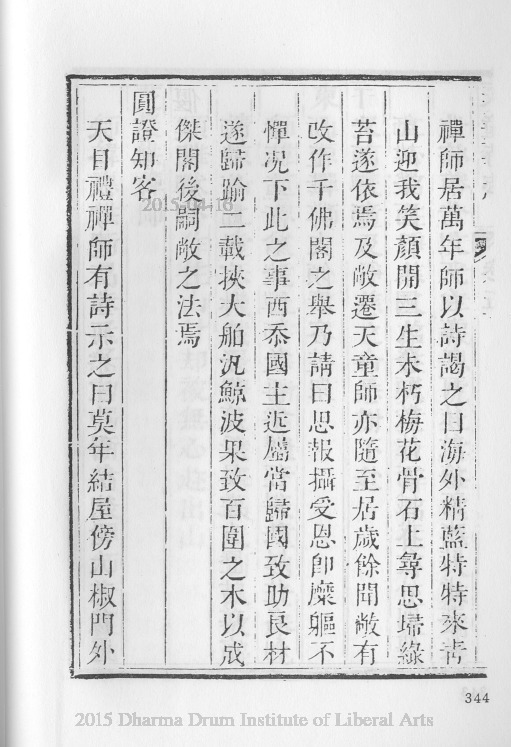 禪師居萬年師以詩謁之曰海外精藍特特來青
山迎我笑顏開三生未朽梅花骨石上尋思埽綠
苔遂依焉及敞遷天童師亦隨至居歲餘聞敞有
改作千佛閣之舉乃請曰思報攝受恩卽糜軀不
憚况下此之事西忝國主近屬當歸國致助良材
遂歸踰二載挾大舶汎鯨波果致百圍之木以成
傑閣後嗣敞之法焉
圓證知客
天目禮禪師有詩示之曰莫年結屋傍山椒門外
344
2015-04-16
2015 Dharma Drum Institute of Liberal Arts